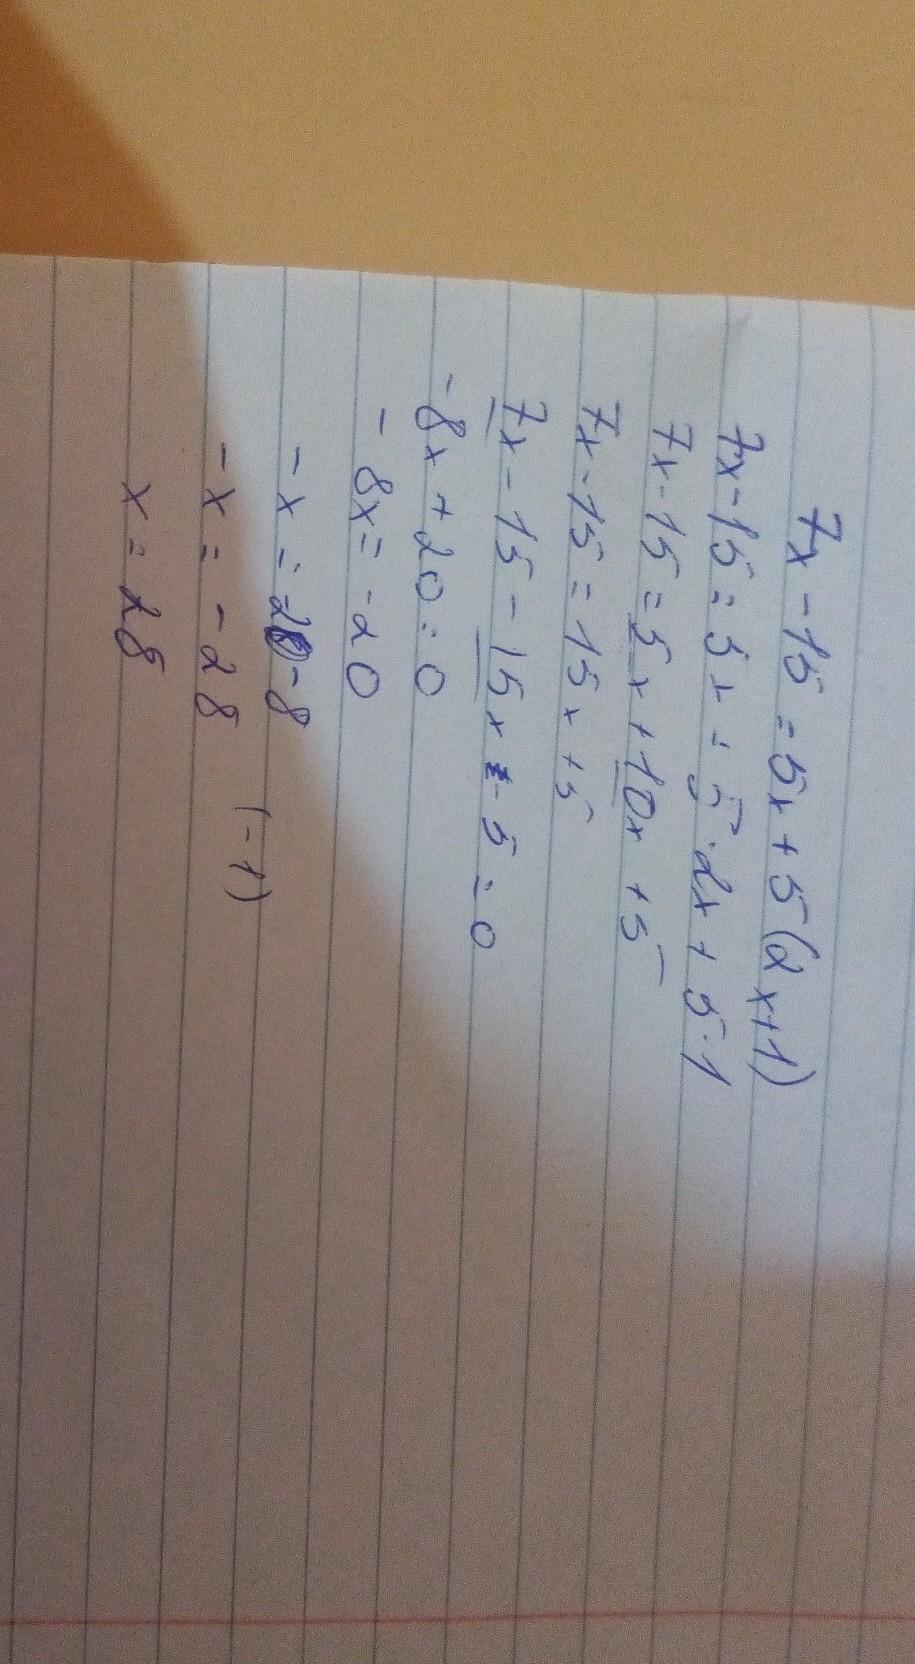 7x - 15 = 5x + 5(2x+1)
7x - 15 = 5x = 5·2x + 5·1
7x - 15 = 5x + 10x + 5
7x - 15 = 15x + 5
7x - 15 - 15x - 5 = 0
-8x + 20 = 0
- 8x = -20
- x = -20 - 8
- x = - 28 (-1)
x = 28